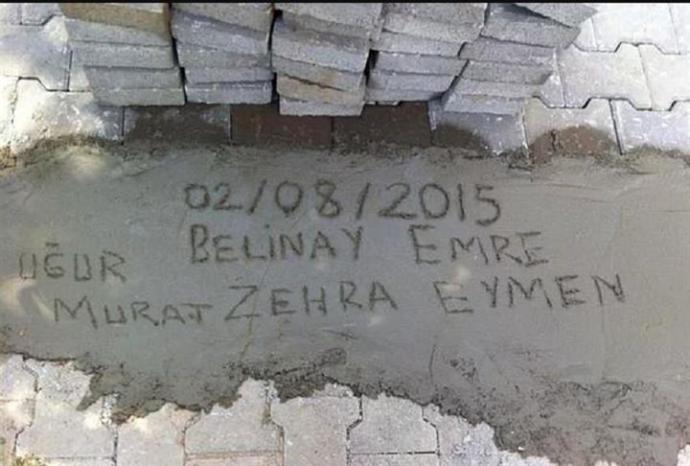 02/08/2015
BELİNAY EMRE
UĞUR
MURAT ZEHRA EYMEN